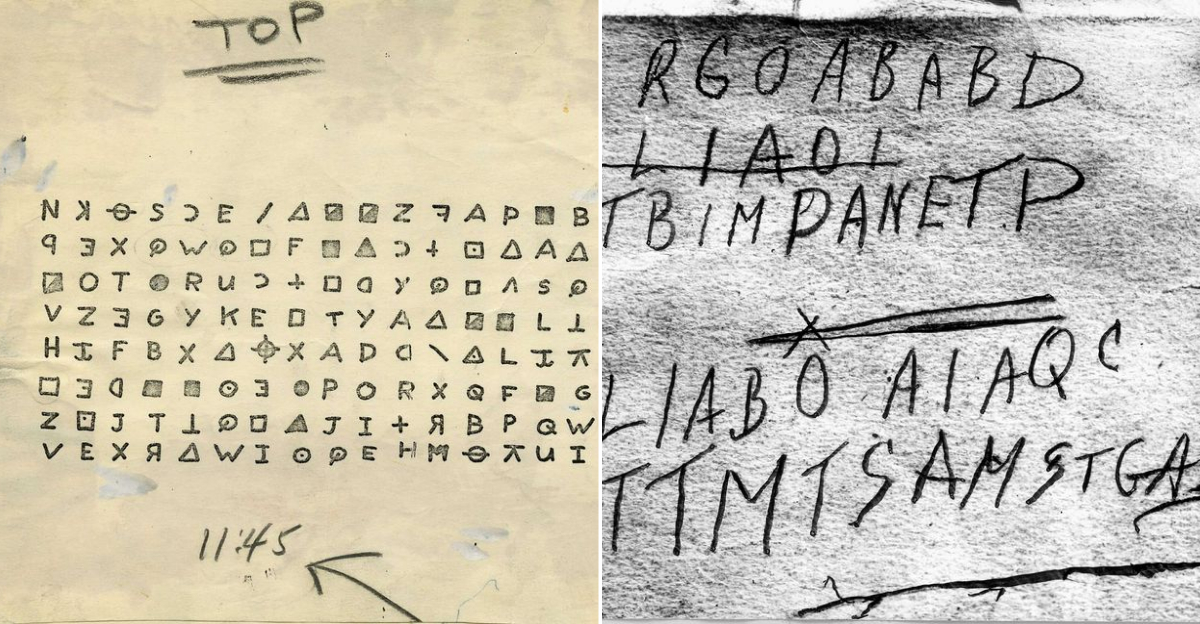 TOP
N ꓘ ⊖ S Ɔ E / △ ◪ ◪ Z ꟻ A P ■ B
ꟼ Ǝ X W □ F ■ ▲ Ɔ + ⊡ △ A △
◪ O T ● R U Ɔ + □ ᗡ Y ⊡ Λ S
V Z Ǝ G Y K E □ T Y A △ ■ ■ L ⊥
H I F B X △ ⌖ X A D ᗡ \ △ L I ⊼
□ Ǝ ᗡ ■ ■ ⊙ Ǝ ● P O R X Q F ■ G
Z ⊡ J T ⊥ □ ▲ J I + Я B P Q W
V E X Я △ W I ⊙ E H M ⊖ ⊼ U I
11:45
RGOABABD
LIAOI
TBIMPANETP
X
LIABOAIAQC
TTMTSAMSTGA